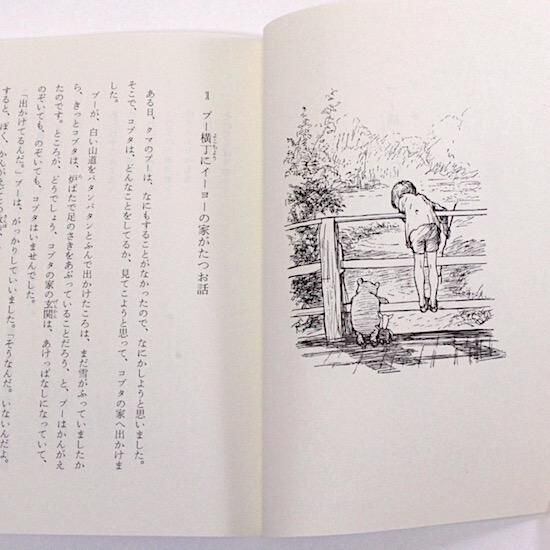 1 プー横丁にイーヨーの家がたつお話
よこちょう
ある日、クマのプーは、なにもすることがなかったので、なにかしようと思いました。
そこで、コブタは、どんなことをしてるか、見てこようと思って、コブタの家へ出かけま
した。
プーが、白い山道をパタンパタンとふんで出かけたころは、まだ雪がふっていましたか
ら、きっとコブタは、炉ばたで足のさきをあぶっていることだろう、と、プーはかんがえ
たのです。ところが、どうでしょう、コブタの家の玄関は、あけっぱなしになっていて、
のぞいても、のぞいても、コブタはいませんでした。
「出かけてるんだ。」プーは、がっかりしていいました。「そうなんだ。いないんだよ。
すると、ぼく、かんがえごとの